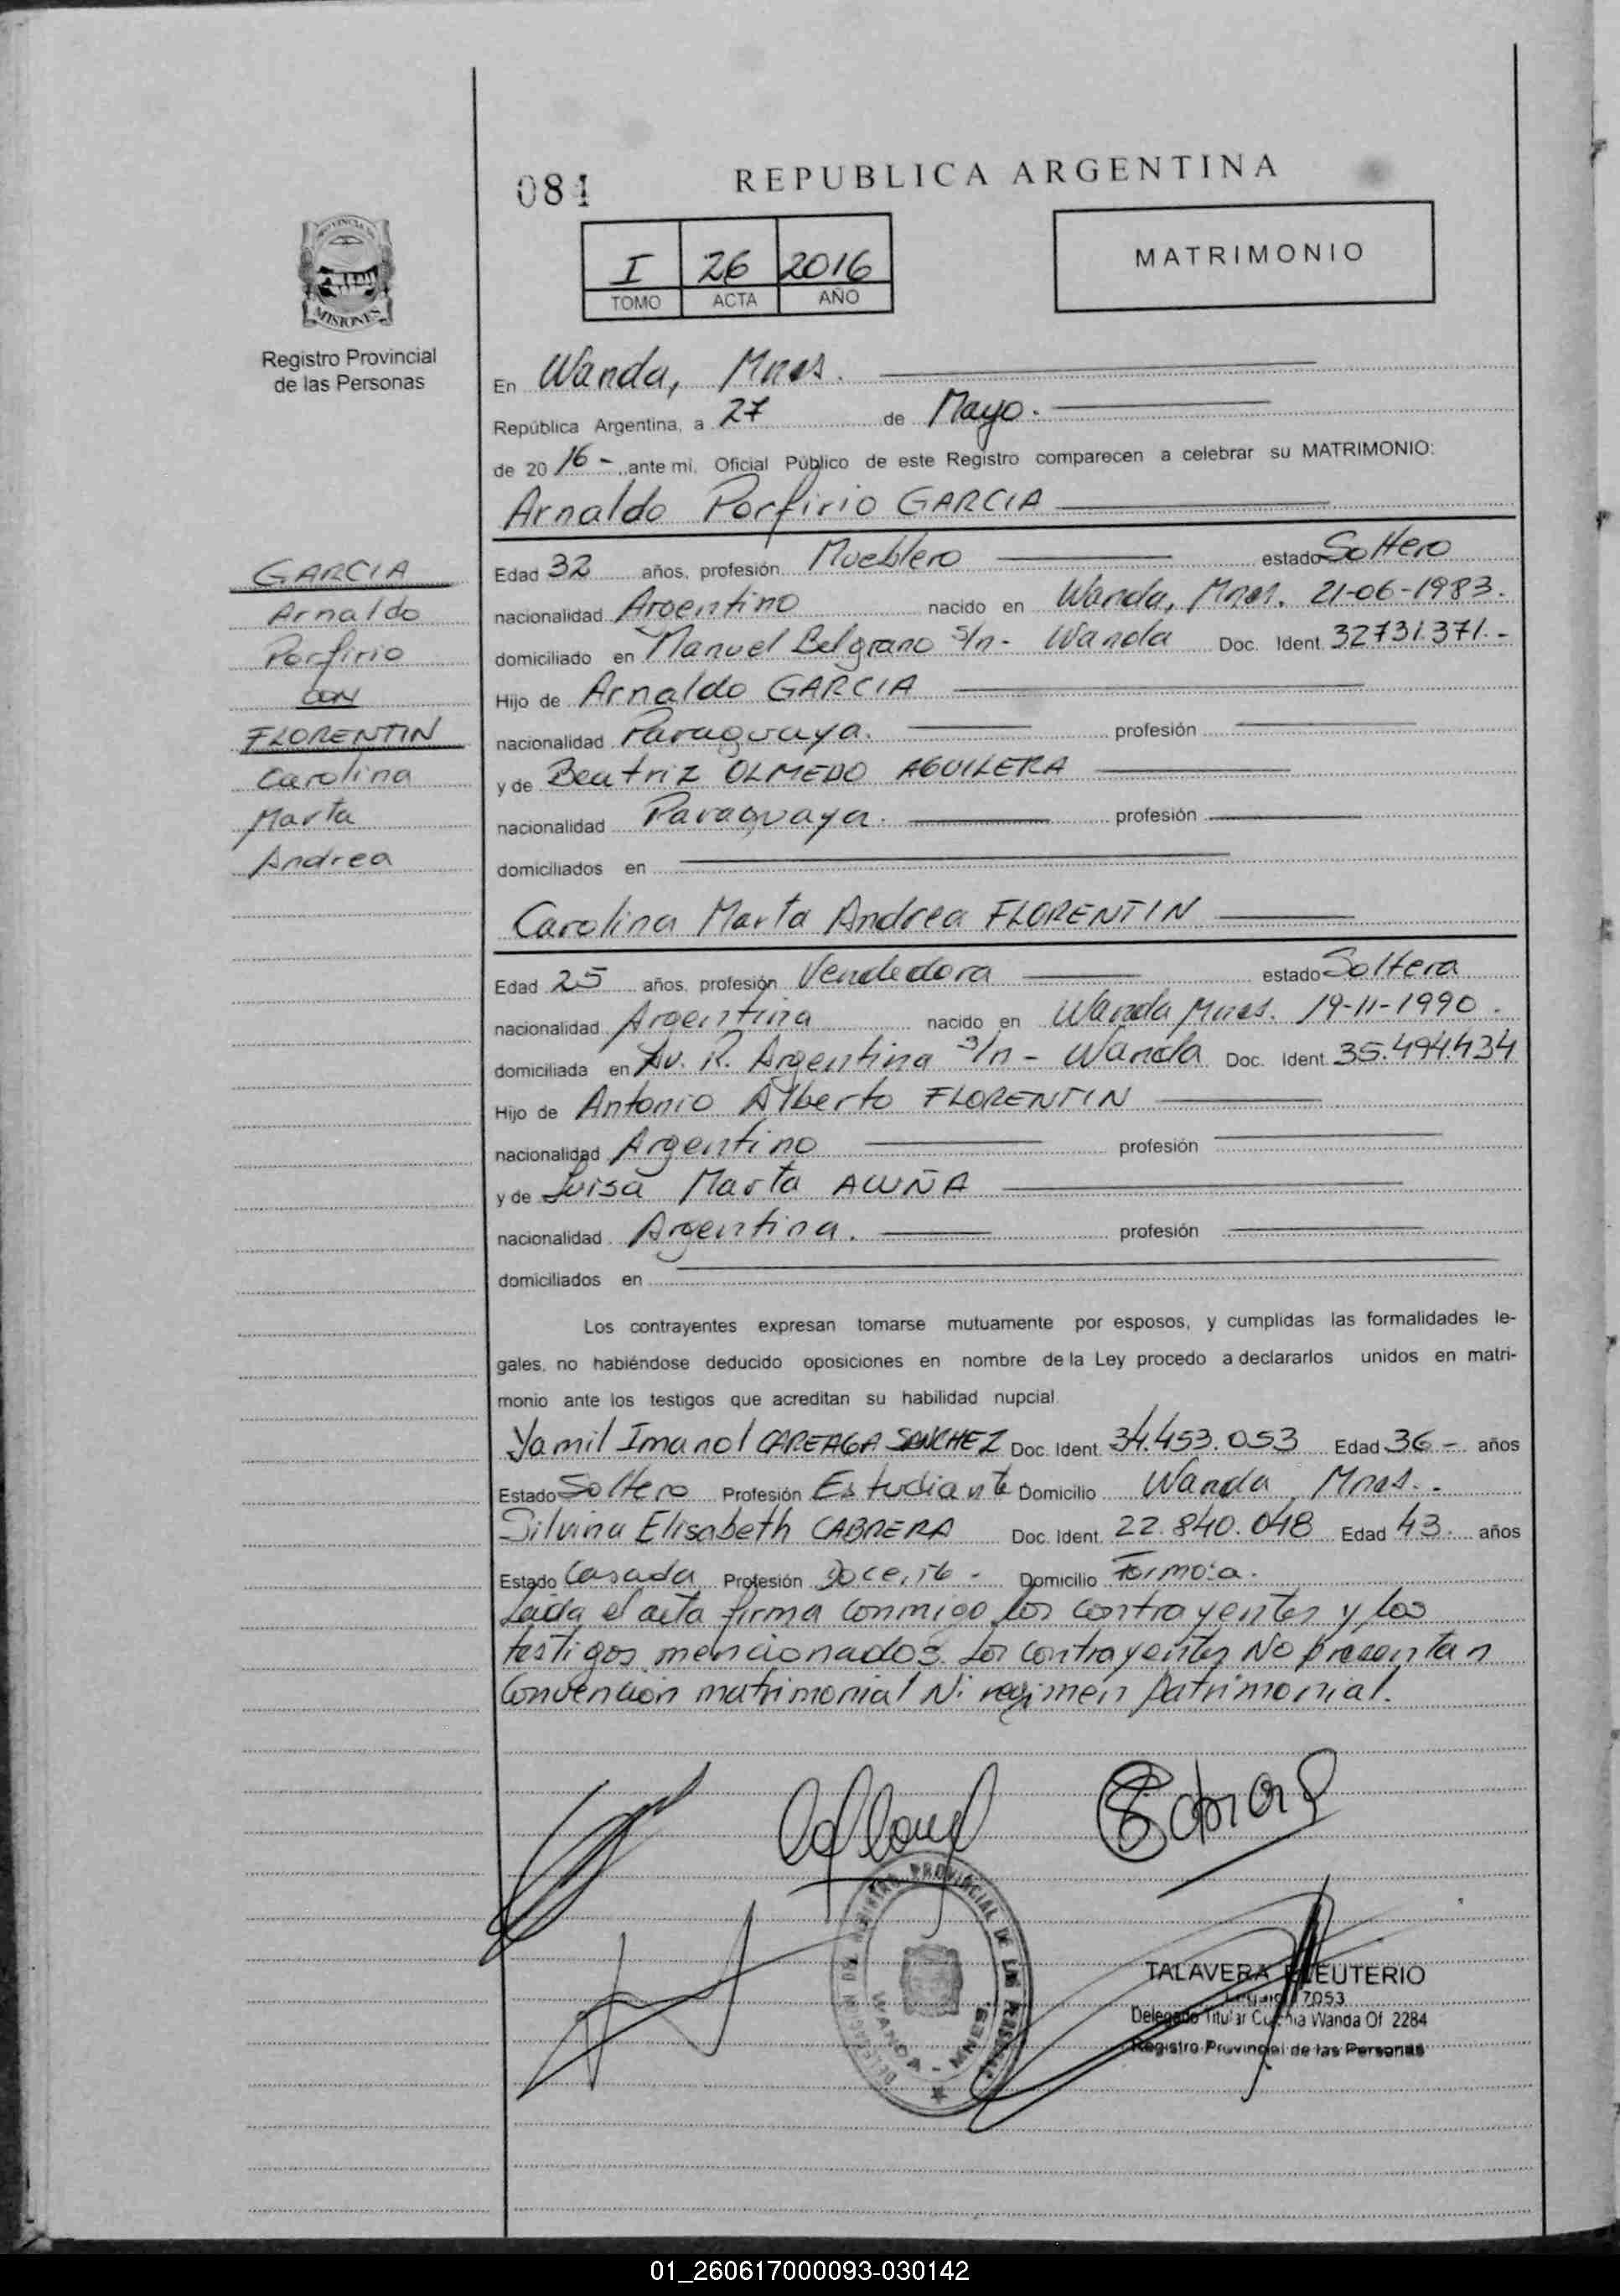 081
REPUBLICA ARGENTINA
I 26 2016
TOMO ACTA AÑO
MATRIMONIO
MISIONES
Registro Provincial
de las Personas
En Wanda, Mnes.
República Argentina, a 27 de Mayo.
de 2016 - ante mi, Oficial Público de este Registro comparecen a celebrar su MATRIMONIO:
Arnaldo Porfirio GARCIA
GARCIA
Arnaldo
Porfirio
CON
FLORENTIN
Carolina
Marta
Andrea
Edad 32 años, profesión Mueblero estado Soltero
nacionalidad Argentino nacido en Wanda, Mnes. 21-06-1983.
domiciliado en Manuel Belgrano s/n - Wanda Doc. Ident. 32731.371.-
Hijo de Arnaldo GARCIA
nacionalidad Paraguaya. profesión
y de Beatriz OLMEDO AGUILERA
nacionalidad Paraguaya. profesión
domiciliados en
Carolina Marta Andrea FLORENTIN
Edad 25 años, profesión Vendedora estado Soltera
nacionalidad Argentina nacido en Wanda Mnes. 19-11-1990.
domiciliada en Av. R. Argentina s/n - Wanda Doc. Ident. 35.494.434
Hijo de Antonio Alberto FLORENTIN
nacionalidad Argentino profesión
y de Luisa Marta ACUÑA
nacionalidad Argentina. profesión
domiciliados en
Los contrayentes expresan tomarse mutuamente por esposos, y cumplidas las formalidades le-
gales, no habiéndose deducido oposiciones en nombre de la Ley procedo a declararlos unidos en matri-
monio ante los testigos que acreditan su habilidad nupcial.
Yamil Imanol CAREAGA SANCHEZ Doc. Ident. 34.453.053 Edad 36 - años
Estado Soltero Profesión Estudiante Domicilio Wanda, Mnes. -
Silvina Elisabeth CABRERA Doc. Ident. 22.840.048 Edad 43. años
Estado Casada Profesión Docente - Domicilio Formosa.
Leida el acta firma conmigo los contrayentes y los
testigos mencionados. Los contrayentes No presentan
Convención matrimonial Ni regimen patrimonial.
DELEGACION DEL REGISTRO PROVINCIAL DE LAS PERSONAS
WANDA - MNES.
TALAVERA ELEUTERIO
Legajo 7053
Delegado Titular Colonia Wanda Of 2284
Registro Provincial de las Personas
01_260617000093-030142